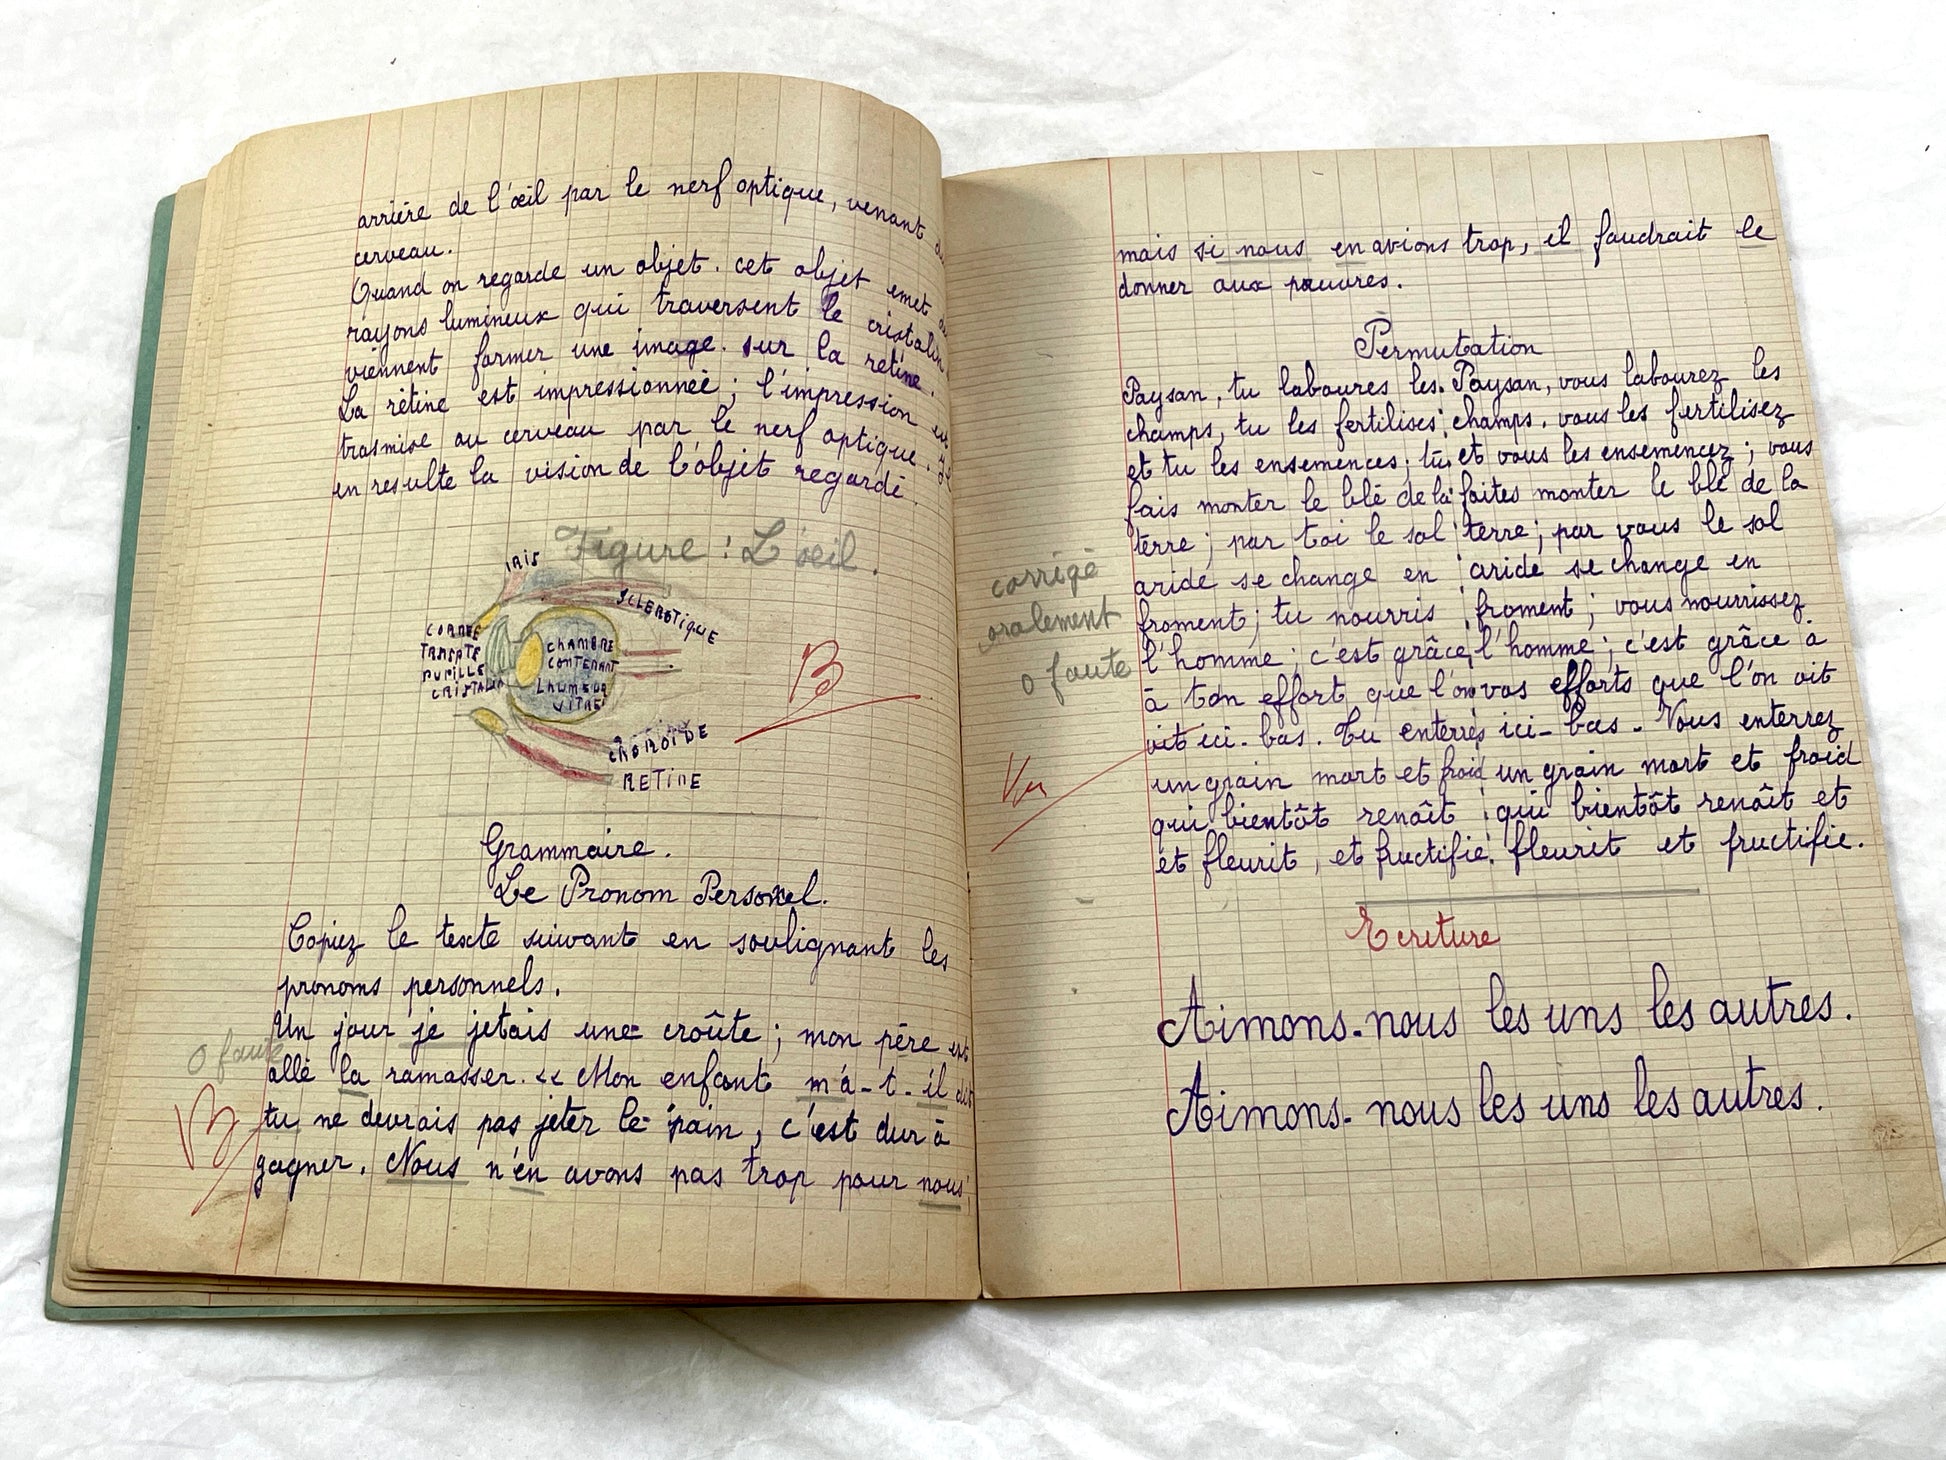 arrière de l'œil par le nerf optique, venant
cerveau.
Quand on regarde un objet. cet objet emet
rayons lumineux qui traversent le cristalin
viennent former une image. sur la rétine.
La rétine est impressionnée ; l'impression est
trasmise au cerveau par le nerf optique.
en resulte la vision de l'objet regardé
Figure : L'œil.
IRIS
SCLEROTIQUE
CORNEE
TRASPTE
PUPILLE
CRISTALIN
CHAMBRE
CONTENANT
LHUMEUR
VITRE
CHOROIDE
RETINE
B
Grammaire.
Le Pronom Personel.
Copiez le texte suivant en soulignant les
pronoms personnels.
Un jour je jetais une croûte ; mon père est
o faute
allé la ramasser. << Mon enfant m'a-t-il
tu ne devrais pas jeter le pain, c'est dur à
B
gagner. Nous n'en avons pas trop pour nous
mais si nous en avions trop, il faudrait le
donner aux pauvres.
Permutation
Paysan, tu laboures les
champs, tu les fertilises
et tu les ensemences ; tu
fais monter le blé de la
terre ; par toi le sol
aride se change en
froment ; tu nourris
l'homme ; c'est grâce
à ton effort que l'on
vit ici-bas. Tu enterres
un grain mort et froid
qui bientôt renaît
et fleurit, et fructifie.
Paysan, vous labourez les
champs. vous les fertilisez
et vous les ensemencez ; vous
faites monter le blé de la
terre ; par vous le sol
aride se change en
froment ; vous nourrissez
l'homme ; c'est grâce à
vos efforts que l'on vit
ici-bas. Vous enterrez
un grain mort et froid
qui bientôt renaît et
fleurit et fructifie.
corrigé
oralement
o faute
Vu
Ecriture
Aimons-nous les uns les autres.
Aimons-nous les uns les autres.